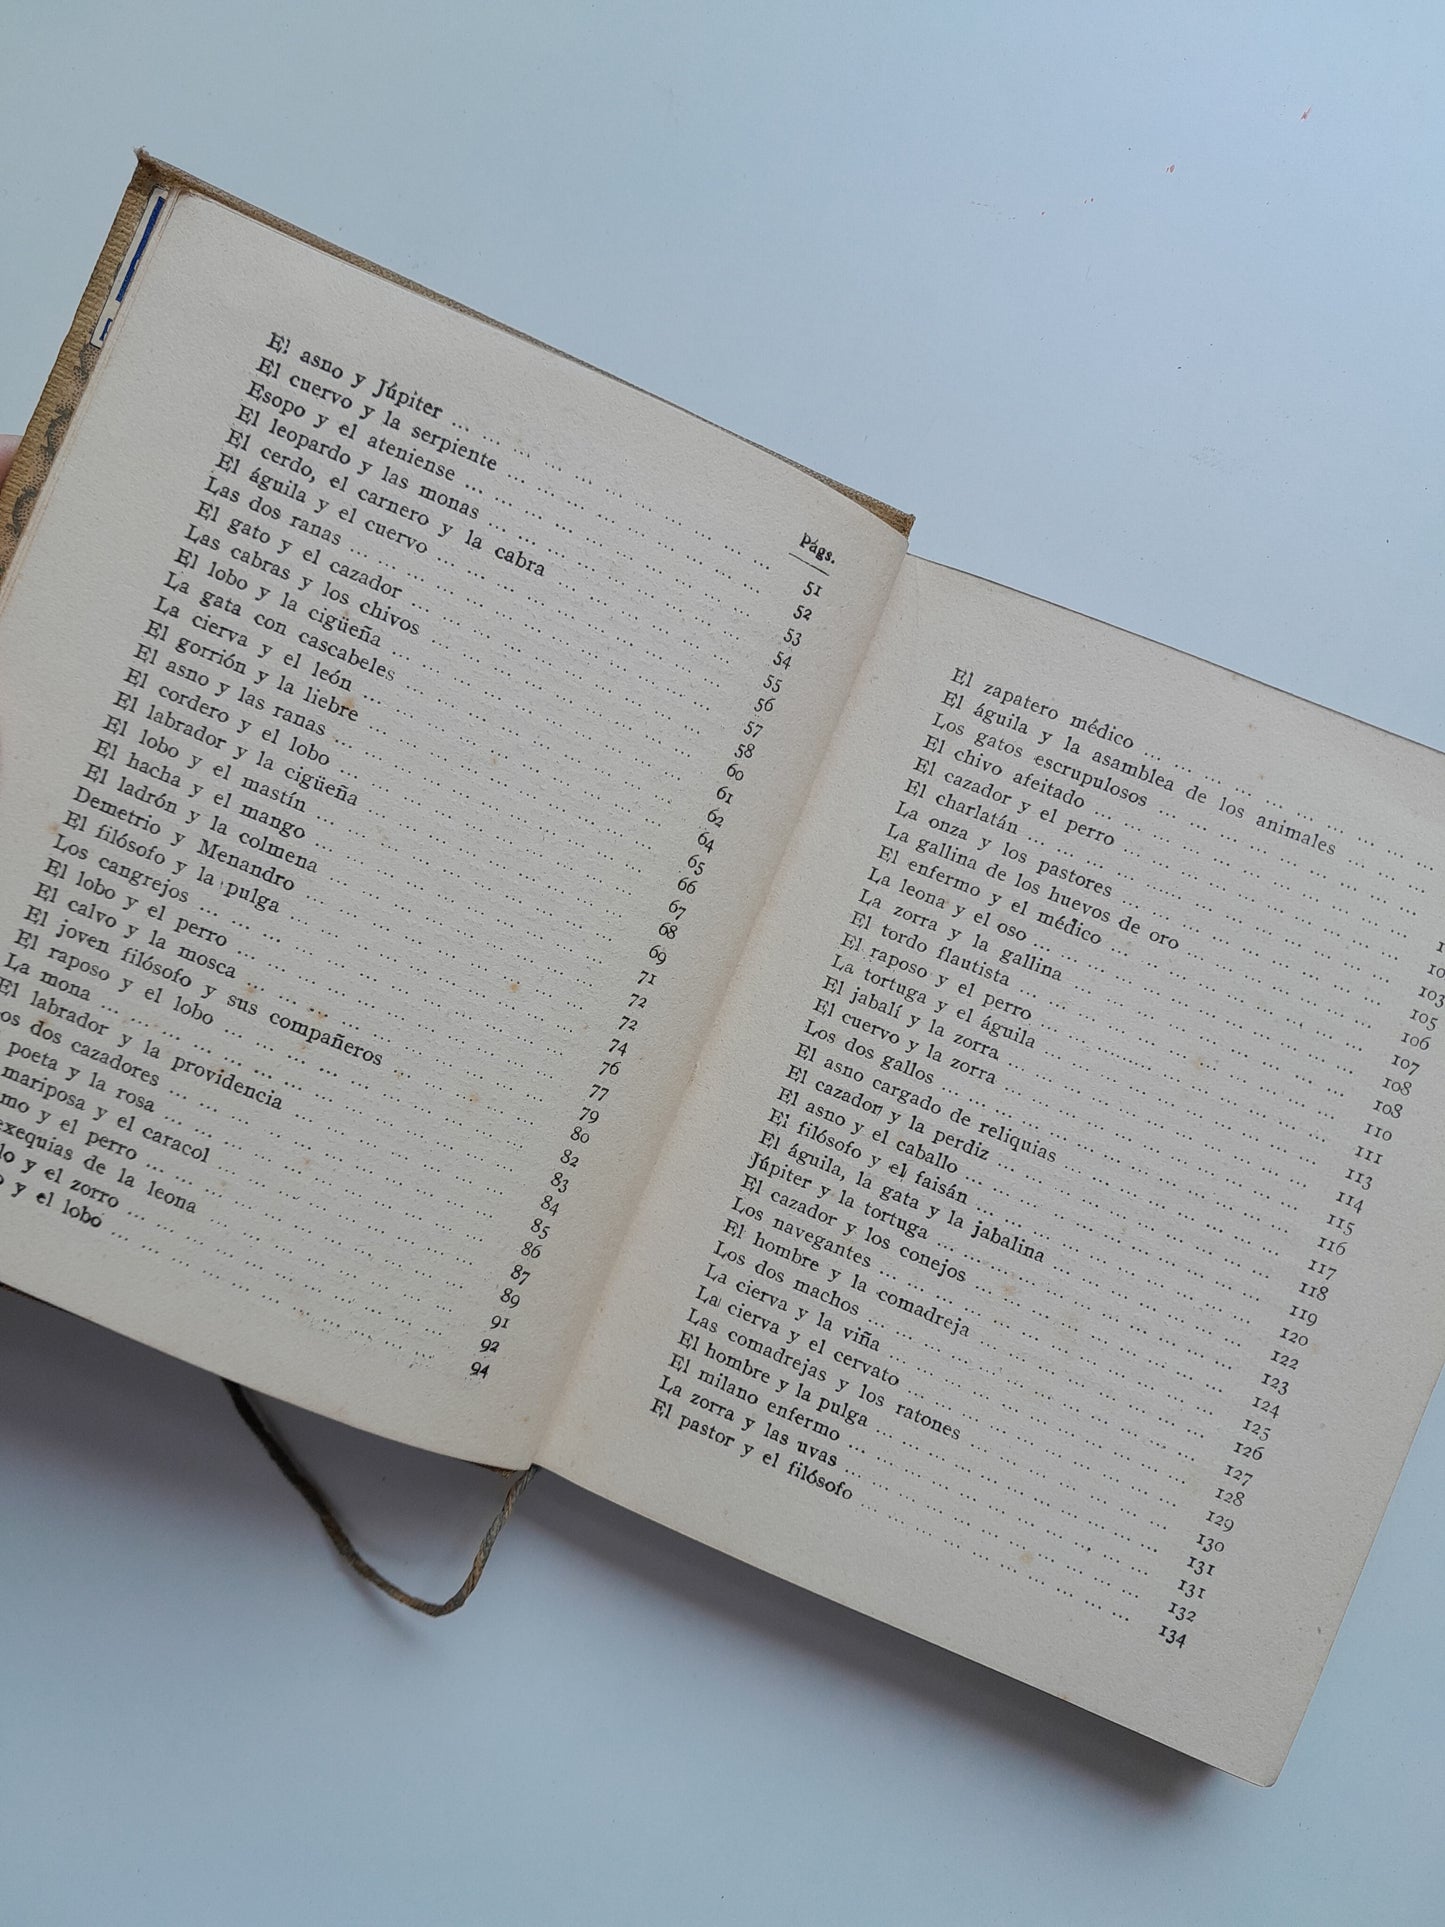 Págs.
El asno y Júpiter ... 51
El cuervo y la serpiente ... 52
Esopo y el ateniense ... 53
El leopardo y las monas ... 54
El cerdo, el carnero y la cabra ... 55
El águila y el cuervo ... 56
Las dos ranas ... 57
El gato y el cazador ... 58
Las cabras y los chivos ... 60
El lobo y la cigüeña ... 61
La gata con cascabeles ... 62
La cierva y el león ... 64
El gorrión y la liebre ... 65
El asno y las ranas ... 66
El cordero y el lobo ... 67
El labrador y la cigüeña ... 68
El lobo y el mastín ... 69
El hacha y el mango ... 71
El ladrón y la colmena ... 72
Demetrio y Menandro ... 72
El filósofo y la pulga ... 74
Los cangrejos ... 76
El lobo y el perro ... 77
El calvo y la mosca ... 79
El joven filósofo y sus compañeros ... 80
El raposo y el lobo ... 82
La mona ... 83
El labrador y la providencia ... 84
os dos cazadores ... 85
poeta y la rosa ... 86
mariposa y el caracol ... 87
mo y el perro ... 89
exequias de la leona ... 91
lo y el zorro ... 92
y el lobo ... 94
El zapatero médico ...
El águila y la asamblea de los animales ...
Los gatos escrupulosos ...
El chivo afeitado ...
El cazador y el perro ...
El charlatán ... 103
La onza y los pastores ... 105
La gallina de los huevos de oro ... 106
El enfermo y el médico ... 107
La leona y el oso ... 108
La zorra y la gallina ... 108
El tordo flautista ... 110
El raposo y el perro ... 111
La tortuga y el águila ... 113
El jabalí y la zorra ... 114
El cuervo y la zorra ... 115
Los dos gallos ... 116
El asno cargado de reliquias ... 117
El cazador y la perdiz ... 118
El asno y el caballo ... 119
El filósofo y el faisán ... 120
El águila, la gata y la jabalina ... 122
Júpiter y la tortuga ... 123
El cazador y los conejos ... 124
Los navegantes ... 125
El hombre y la comadreja ... 126
Los dos machos ... 127
La cierva y la viña ... 128
La cierva y el cervato ... 129
Las comadrejas y los ratones ... 130
El hombre y la pulga ... 131
El milano enfermo ... 131
La zorra y las uvas ... 132
El pastor y el filósofo ... 134